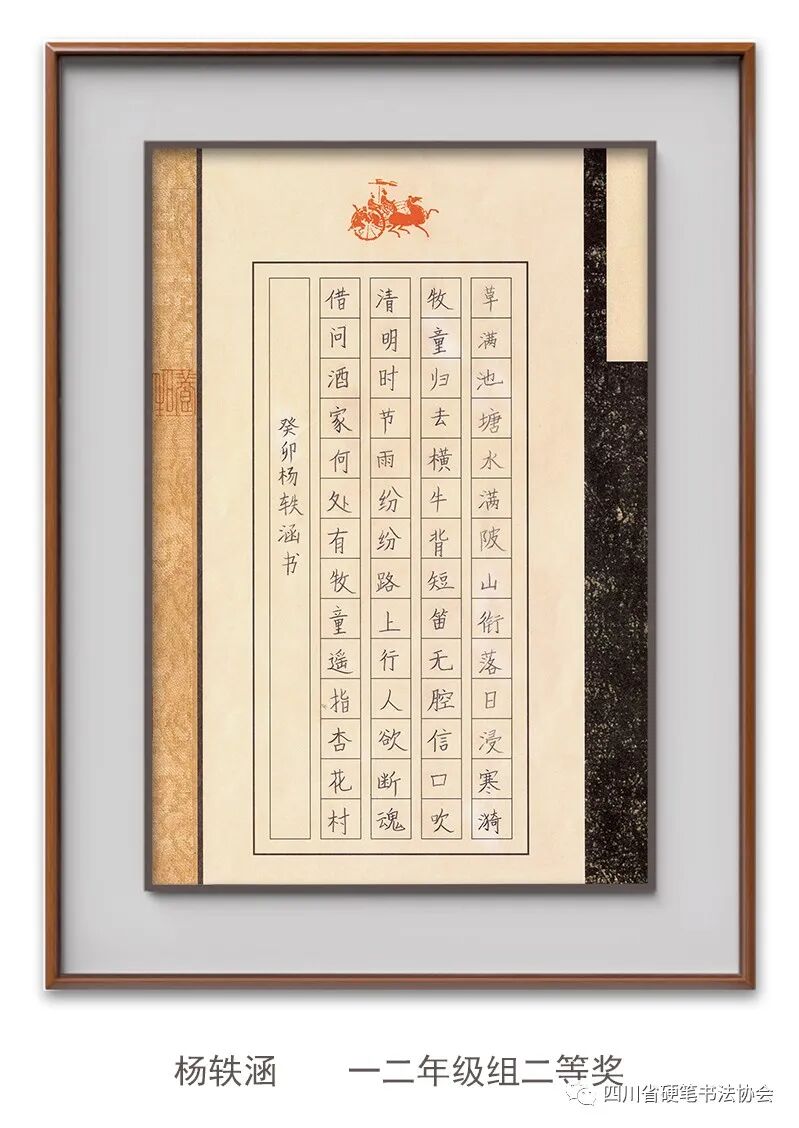 草满池塘水满陂山衔落日浸寒漪
牧童归去横牛背短笛无腔信口吹
清明时节雨纷纷路上行人欲断魂
借问酒家何处有牧童遥指杏花村
癸卯杨轶涵书
杨轶涵 一二年级组二等奖
四川省硬笔书法协会